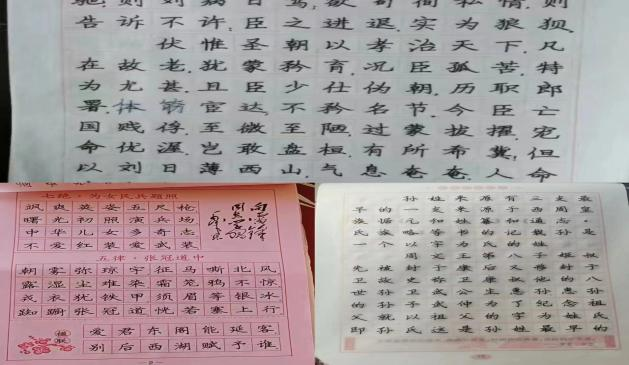 告诉不许:臣之进退,实为狼狈.
伏惟圣朝以孝治天下.凡
在故老,犹蒙矜育,况臣孤苦,特
为尤甚.且臣少仕伪朝,历职郎
署,宦达,不矜名节.今臣亡
国贱俘,至微至陋,过蒙拔擢,
命优渥,岂敢盘桓,有所希冀,但
以刘日薄西山,气息奄奄,人命
七绝·为女民兵题照
飒爽英姿五尺枪
曙光初照演兵场
中华儿女多奇志
不爱红装爱武装
五律·张冠道中
朝雾弥琼宇征马嘶北风
露湿尘难染霜笼鸦不惊
戎衣犹铁甲须眉等银冰
踟蹰张冠道恍若塞上行
楹联
爱君东阁能延客
别后西湖赋予谁
孙姓来原有三史最
早的一支来源于西周皇
族据元和姓纂和通志·
氏族略等书的记载孙是
一个以字为氏的姓
周文王第八子姬叔
先被封于康后又移封于
卫故史称卫康叔他的八
世孙卫武公生惠孙惠孙
的孙子武仲为了纪念祖
父就以祖父的字为姓氏
即孙氏这是孙姓最早的